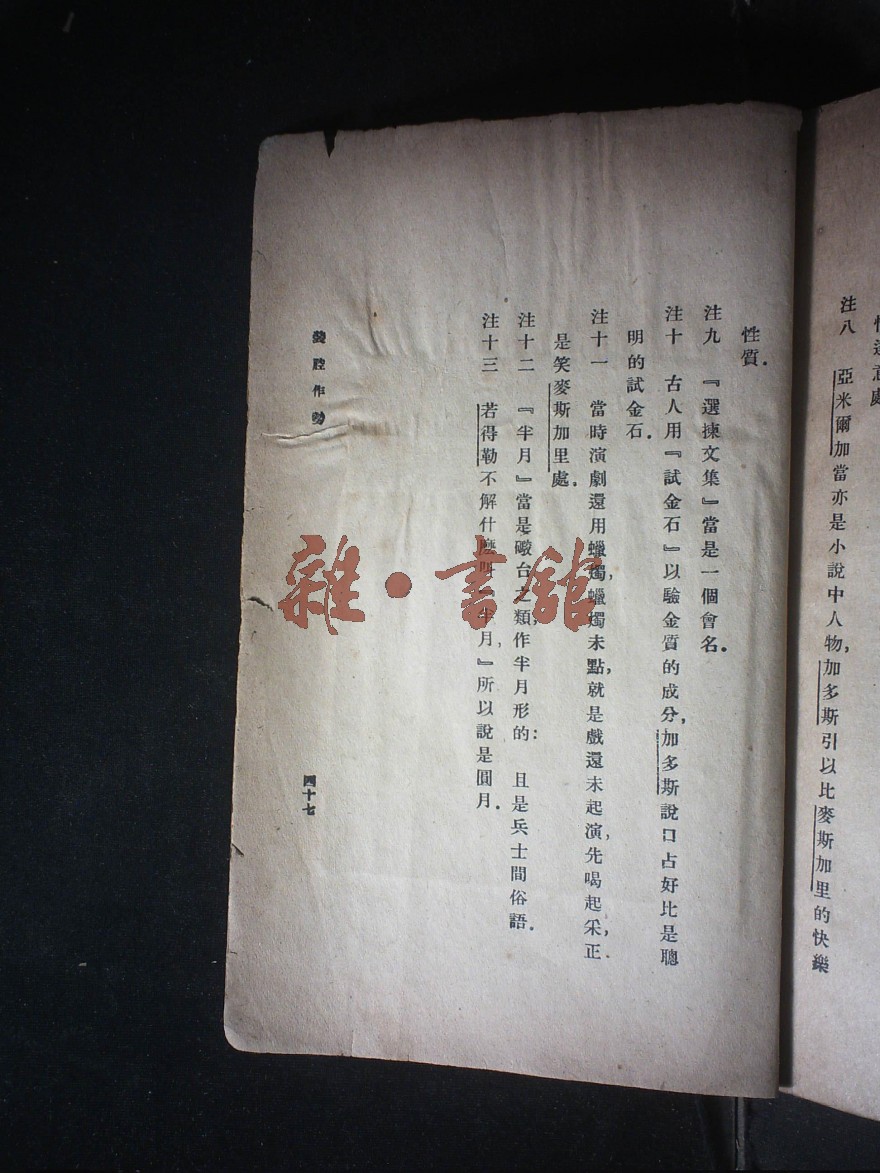 注八 亞米爾加當亦是小說中人物，加多斯引以比麥斯加里的快樂
性質．
注九 『選揀文集』當是一個會名．
注十 古人用『試金石』以驗金質的成分，加多斯說口占好比是聰
明的試金石．
注十一 當時演劇還用蠟燭，蠟燭未點，就是戲還未起演，先喝起采，正
是笑麥斯加里處．
注十二 『半月』當是礮台之類，作半月形的： 且是兵士間俗語．
注十三 若得勒不解什麼叫『半月，』所以說是圓月．
裝腔作勢
四十七
雜·書館